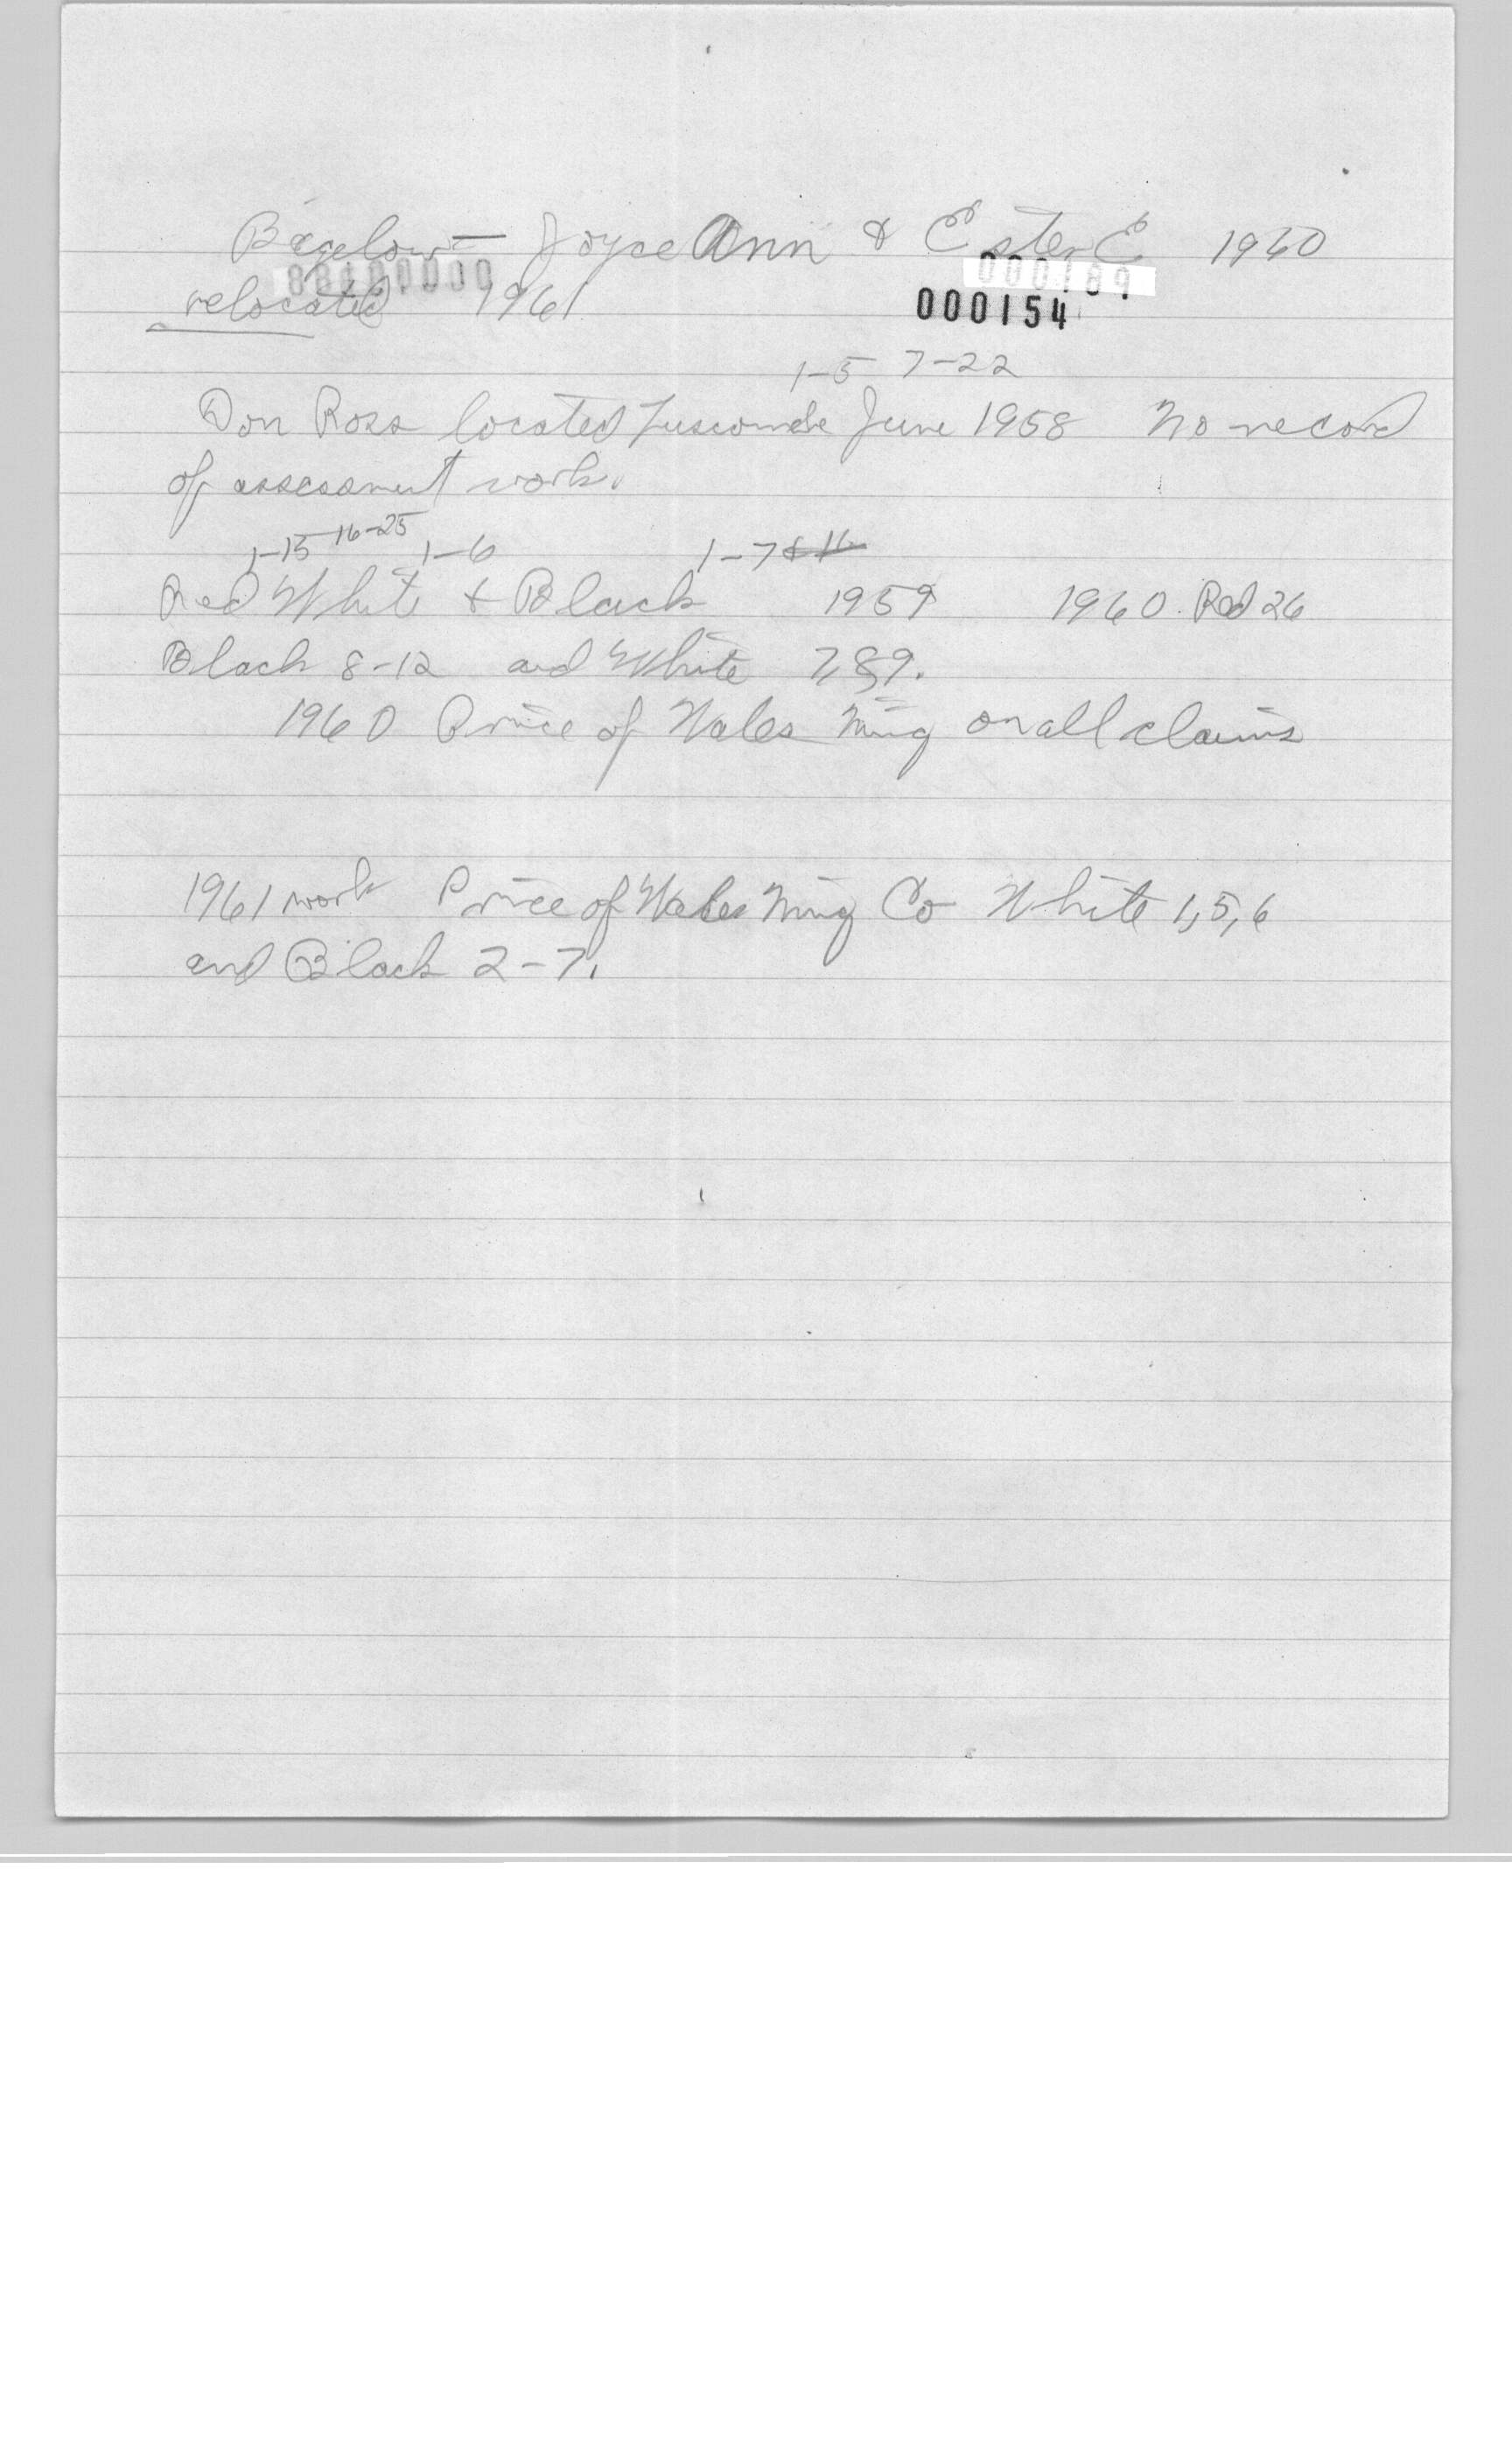 Bagelow - Joyce Ann & Ester E 1960
000189
relocated 1961
000154
1-5 7-22
Don Ross located June 1958 No record
of assessment work.
1-15 16-25 1-6 1-7
Red White + Black 1959 1960 Red 26
Black 8-12 and White 7,8,9.
1960 Prince of Wales Mng on all claims
1961 work Prince of Wales Mng Co White 1,5,6
and Black 2-7.